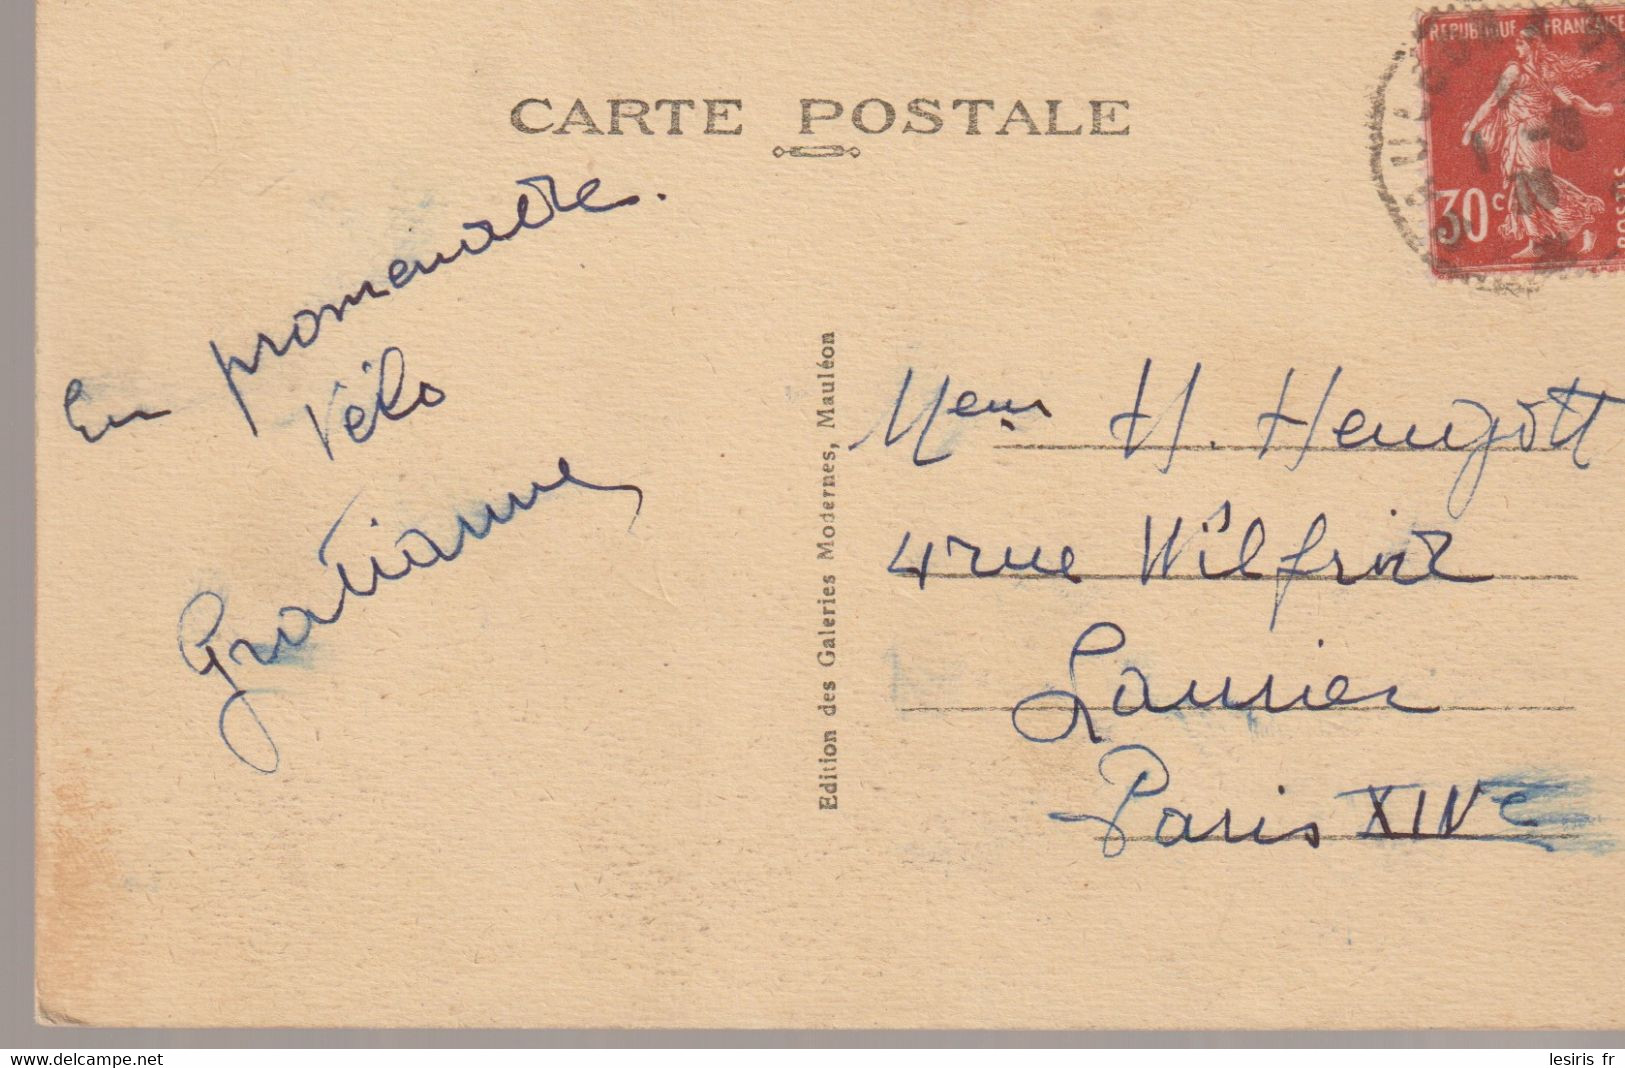 CARTE POSTALE
REPUBLIQUE FRANÇAISE
30 c
POSTES
1 -8
En promenade
Vélo
Gratianne
Edition des Galeries Modernes, Mauléon
Mem H.
4 rue Wilfrid
Laurier
Paris XIVe
www.delcampe.net
lesiris fr